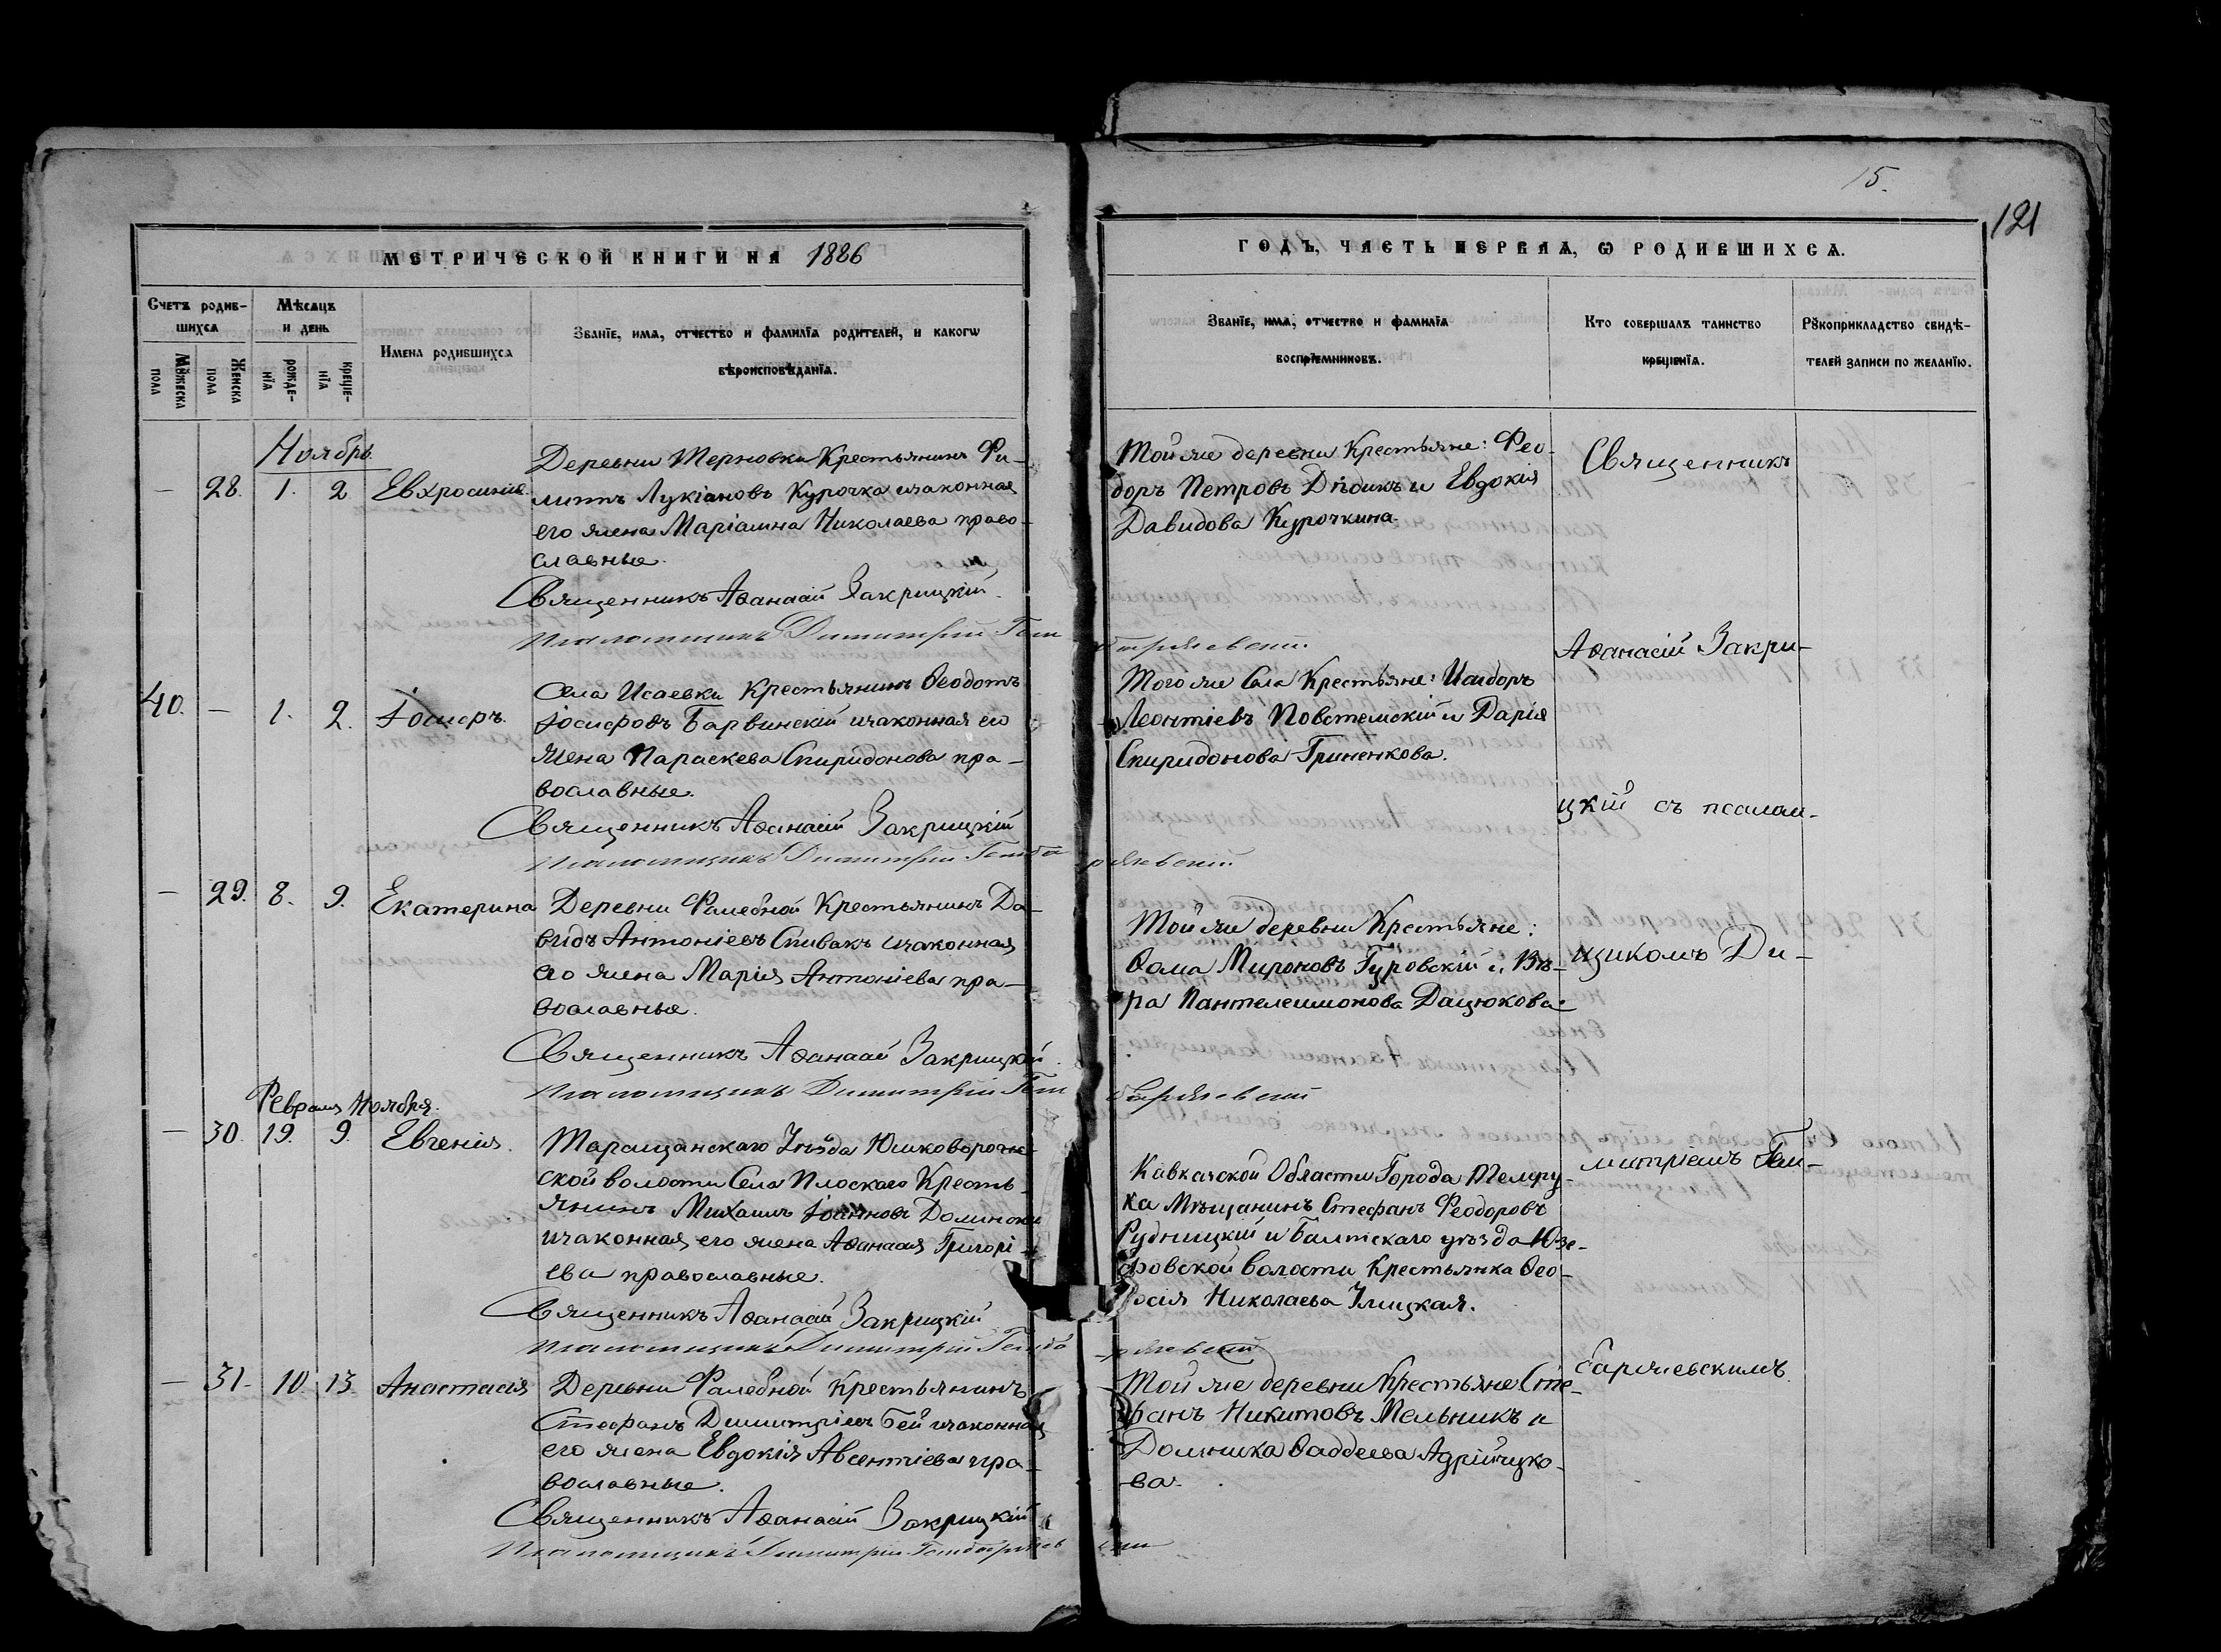 15.
121
МЕТРИЧЕСКОЙ КНИГИ НА 1886
ГОДЪ, ЧАСТЬ ПЕРВАѦ, Ѡ РОДИВШИХСѦ.
Счетъ родив-
шихсѧ
Мѣсѧцъ
и день
Мꙋжеска
пола
Женска
пола
рожде-
нїѧ
креще-
нїѧ
Имена родившихсѧ
Званїе, имѧ, отчество и фамилїѧ родителей, и какогѡ
вѣроисповѣданїѧ.
Званїе, имѧ, отчество и фамилїѧ
воспрїемниковъ.
Кто совершалъ таинство
крещенїѧ.
Рꙋкоприкладство свидѣ-
телей записи по желанїю.
Ноябрь
— 28. 1. 2 Евхросинія
Деревни Терновки Крестьянинъ Фи-
липъ Лукіановъ Курочка изаконная
его жена Маріамна Николаева право-
славные.
Священникъ Аѳанасій Закрицкій.
Псаломщикъ Димитрій
Тойже деревни Крестьяне: Фео-
доръ Петровъ Дѣдикъ и Евдокія
Давидова Курочкина.
Священникъ
40. — 1. 2. Іосифъ.
Села Исаевки Крестьянинъ Ѳеодотъ
Іосифовъ Барвинскій изаконная его
жена Параскева Спиридонова пра-
вославные.
Священникъ Аѳанасій Закрицкій
Псаломщикъ Димитрій
Тогоже Села Крестьяне: Исидоръ
Леонтіевъ Повстемскій и Дарія
Спиридонова Гриненкова.
Аѳанасій Закри-
цкій съ псалом-
— 29. 8. 9. Екатерина
Деревни Фалебной Крестьянинъ Да-
видъ Антоніевъ Спивакъ изаконная
его жена Марія Антоніева пра-
вославные.
Священникъ Аѳанасій Закрицкій.
Псаломщикъ Димитрій
Тойже деревни Крестьяне:
Ѳома Мироновъ Гуровскій и Вѣ-
ра Пантелеимонова Дацюкова
щикомъ Ди-
Февраля Ноября.
— 30. 19. 9. Евгенія.
Таращанскаго Уѣзда
ской волости Села Плоскаго Кресть-
янинъ Михаилъ Іоанновъ
изаконная его жена Аѳанасія Григорі-
ева православные.
Священникъ Аѳанасій Закрицкій
Псаломщикъ Димитрій
Кавказской Области Города Темрю-
ка Мѣщанинъ Стефанъ Феодоровъ
Рудницкій и Балтскаго уѣзда Юзе-
фовской волости Крестьянка Ѳео-
досія Николаева Улицкая.
митріемъ Гем-
баржевскимъ.
— 31. 10. 13. Анастасія
Деревни Фалебной Крестьянинъ
Стефанъ Димитріевъ Бей изаконная
его жена Евдокія Авсентіева пра-
вославные.
Священникъ Аѳанасій Закрицкій
Псаломщикъ Димитрій
Тойже деревни Крестьяне Сте-
фанъ Никитовъ Мельникъ и
Домника Ѳаддеева Адрійчуко-
ва.